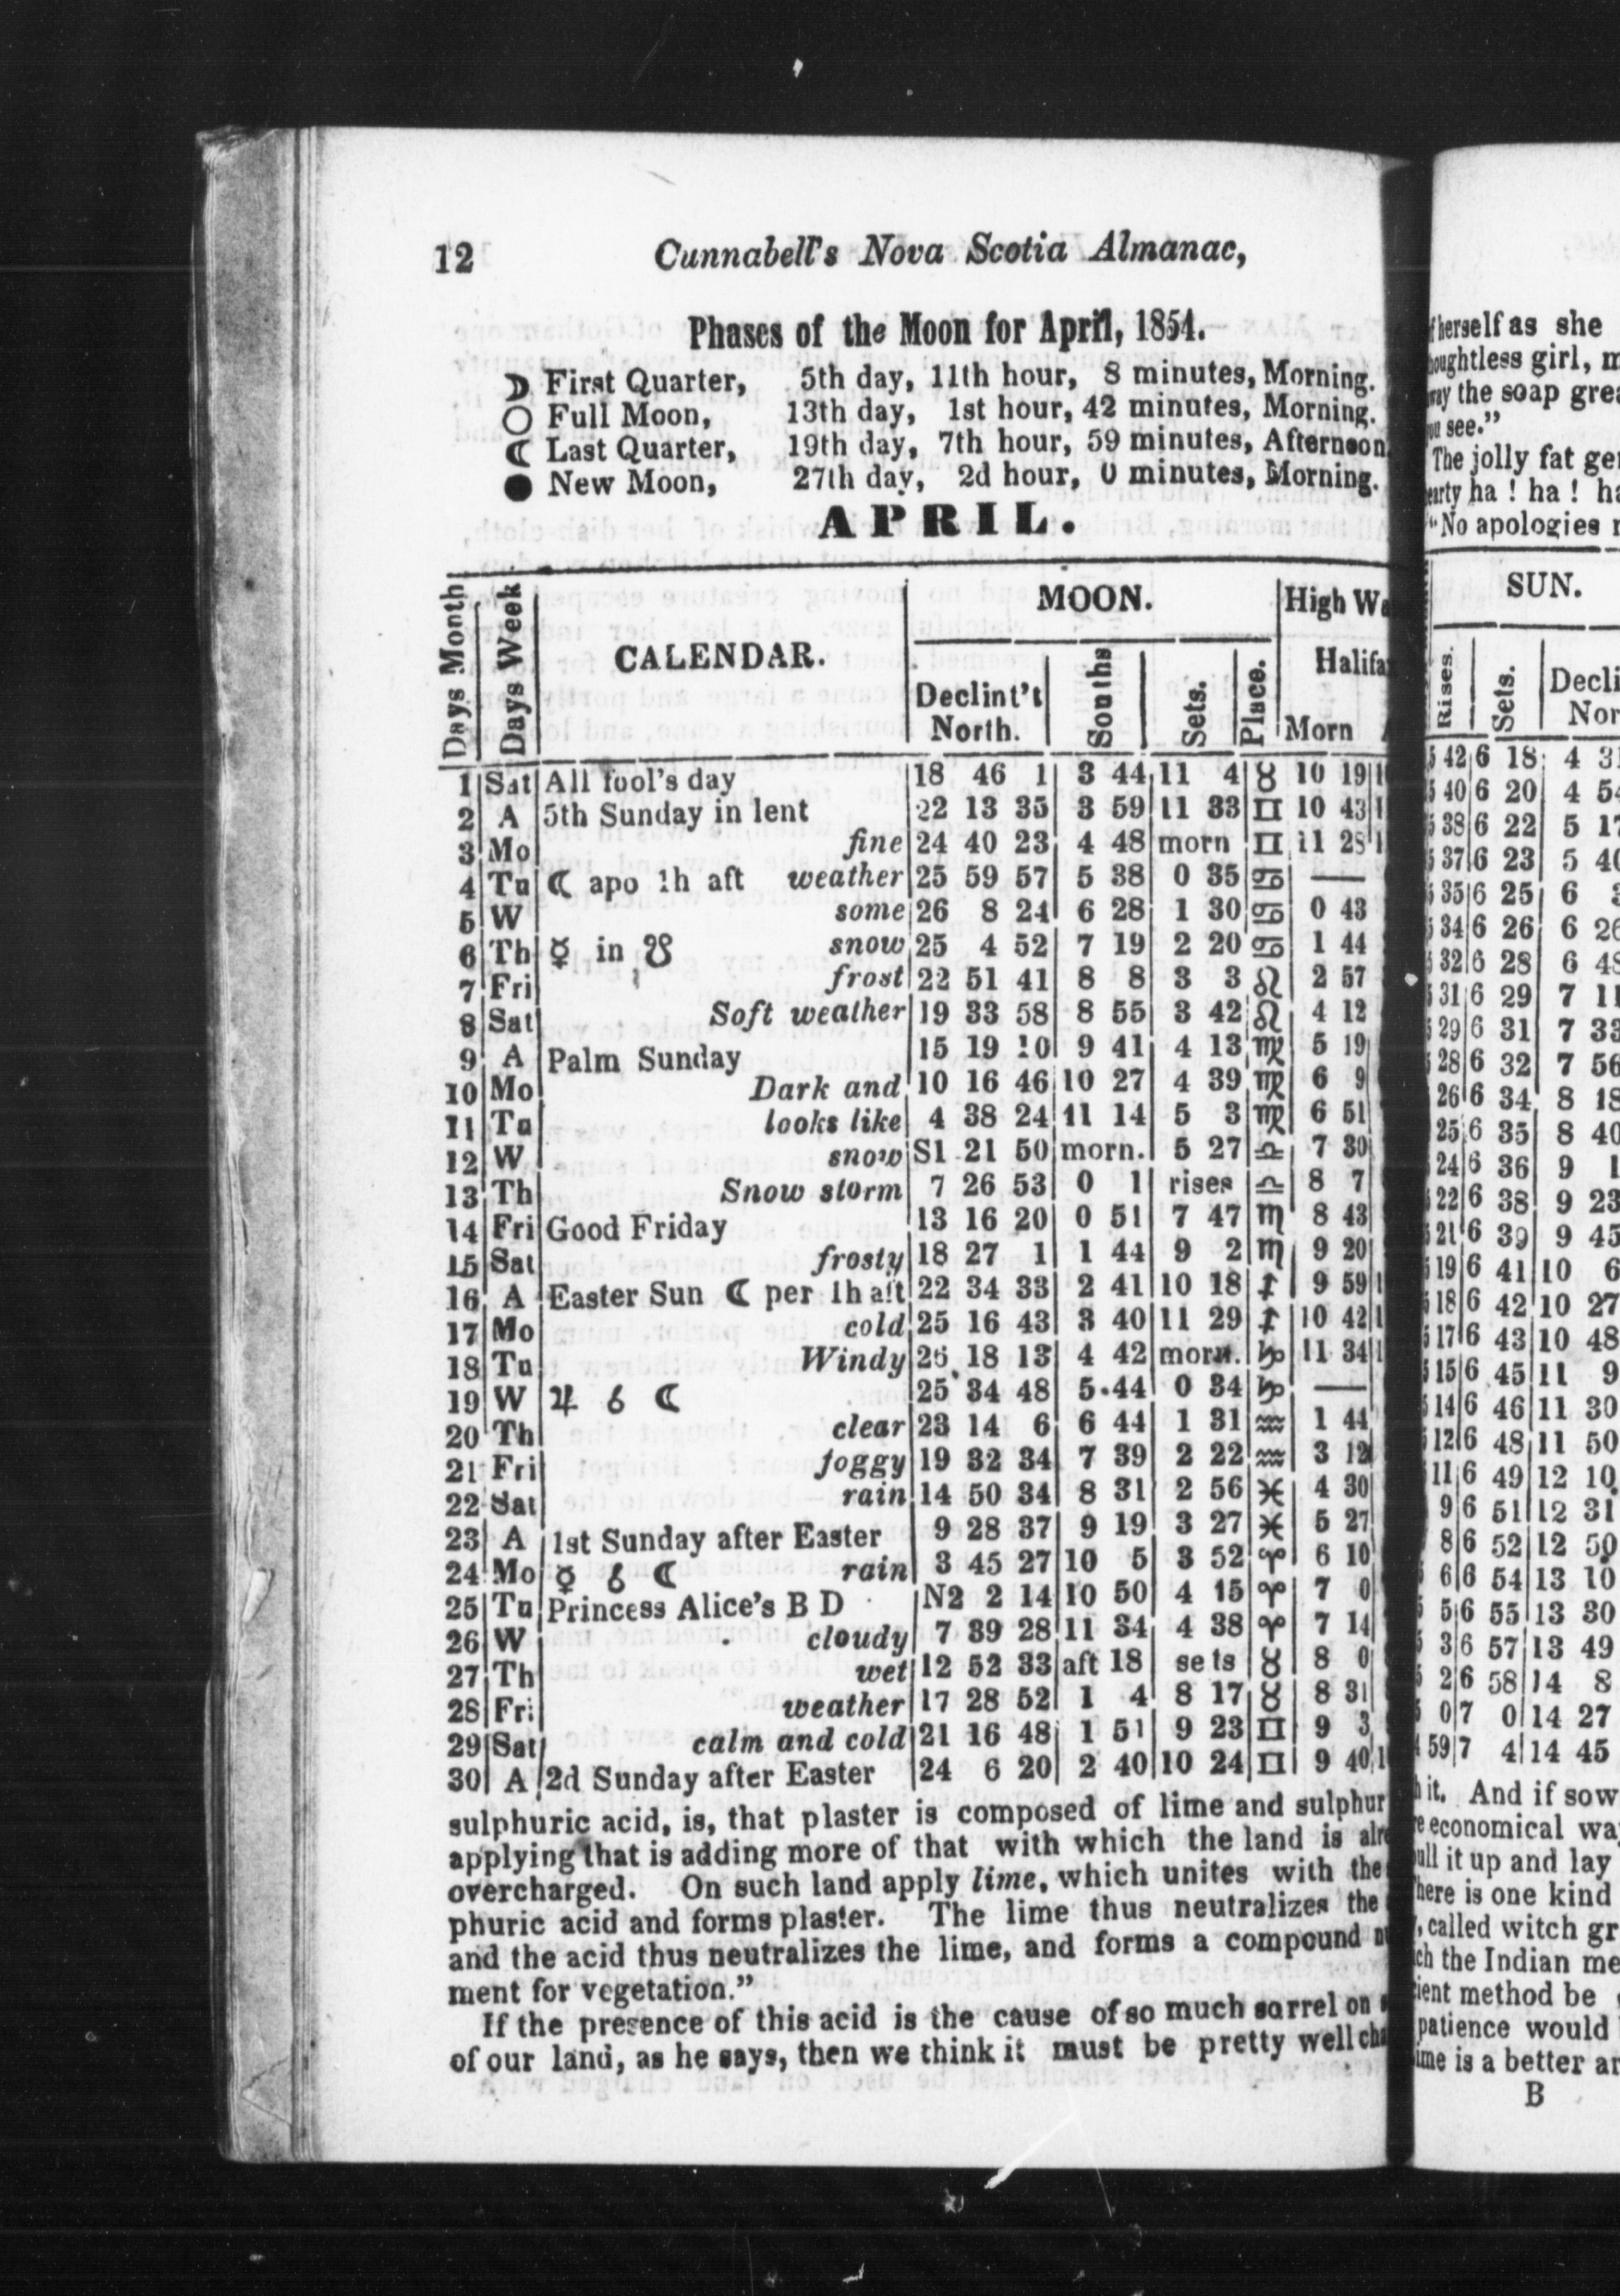 12 Cunnabell's Nova Scotia Almanac,
Phases of the Moon for April, 1854.
☽ First Quarter, 5th day, 11th hour, 8 minutes, Morning.
○ Full Moon, 13th day, 1st hour, 42 minutes, Morning.
☾ Last Quarter, 19th day, 7th hour, 59 minutes, Afternoon
● New Moon, 27th day, 2d hour, 0 minutes, Morning.
APRIL.
Days Month Days Week CALENDAR. MOON. High Wa
Halifax
Declint't North. Souths Sets. Place. Morn
1 Sat All fool's day 18 46 1 3 44 11 4 ♉ 10 19
2 A 5th Sunday in lent 22 13 35 3 59 11 33 ♊ 10 43
3 Mo fine 24 40 23 4 48 morn ♊ 11 28
4 Tu ☾ apo 1h aft weather 25 59 57 5 38 0 35 ♋ —
5 W some 26 8 24 6 28 1 30 ♋ 0 43
6 Th ☿ in ☋ snow 25 4 52 7 19 2 20 ♋ 1 44
7 Fri frost 22 51 41 8 8 3 3 ♌ 2 57
8 Sat Soft weather 19 33 58 8 55 3 42 ♌ 4 12
9 A Palm Sunday 15 19 10 9 41 4 13 ♍ 5 19
10 Mo Dark and 10 16 46 10 27 4 39 ♍ 6 9
11 Tu looks like 4 38 24 11 14 5 3 ♍ 6 51
12 W snow S1 21 50 morn. 5 27 ♎ 7 30
13 Th Snow storm 7 26 53 0 1 rises ♎ 8 7
14 Fri Good Friday 13 16 20 0 51 7 47 ♏ 8 43
15 Sat frosty 18 27 1 1 44 9 2 ♏ 9 20
16 A Easter Sun ☾ per 1h aft 22 34 33 2 41 10 18 ♐ 9 59
17 Mo cold 25 16 43 3 40 11 29 ♐ 10 42
18 Tu Windy 26 18 13 4 42 morn. ♑ 11 34
19 W ♃ ☌ ☾ 25 34 48 5 44 0 34 ♑ —
20 Th clear 23 14 6 6 44 1 31 ♒ 1 44
21 Fri foggy 19 32 34 7 39 2 22 ♒ 3 12
22 Sat rain 14 50 34 8 31 2 56 ♓ 4 30
23 A 1st Sunday after Easter 9 28 37 9 19 3 27 ♓ 5 27
24 Mo ☿ ☌ ☾ rain 3 45 27 10 5 3 52 ♈ 6 10
25 Tu Princess Alice's B D N2 2 14 10 50 4 15 ♈ 7 0
26 W cloudy 7 39 28 11 34 4 38 ♈ 7 14
27 Th wet 12 52 33 aft 18 sets ♉ 8 0
28 Fri weather 17 28 52 1 4 8 17 ♉ 8 31
29 Sat calm and cold 21 16 48 1 51 9 23 ♊ 9 3
30 A 2d Sunday after Easter 24 6 20 2 40 10 24 ♊ 9 40
sulphuric acid, is, that plaster is composed of lime and sulphur
applying that is adding more of that with which the land is alre
overcharged. On such land apply lime, which unites with the
phuric acid and forms plaster. The lime thus neutralizes the
and the acid thus neutralizes the lime, and forms a compound
ment for vegetation."
If the presence of this acid is the cause of so much sorrel on
of our land, as he says, then we think it must be pretty well cha
herself as she
oughtless girl, m
the soap grea
see."
The jolly fat ge
ha! ha! ha
"No apologies
SUN.
Rises. Sets. Decli
Nor
5 42 6 18 4 31
5 40 6 20 4 54
5 38 6 22 5 17
5 37 6 23 5 40
5 35 6 25 6
5 34 6 26 6 26
5 32 6 28 6 48
5 31 6 29 7 11
5 29 6 31 7 33
5 28 6 32 7 56
26 6 34 8 18
25 6 35 8 40
24 6 36 9 1
5 22 6 38 9 23
5 21 6 39 9 45
5 19 6 41 10 6
5 18 6 42 10 27
5 17 6 43 10 48
5 15 6 45 11 9
5 14 6 46 11 30
5 12 6 48 11 50
5 11 6 49 12 10
9 6 51 12 31
8 6 52 12 50
6 6 54 13 10
5 5 6 55 13 30
5 3 6 57 13 49
5 2 6 58 14 8
5 0 7 0 14 27
4 59 7 4 14 45
it. And if sow
economical wa
it up and lay
here is one kind
, called witch gr
the Indian me
method be
patience would
ime is a better
B